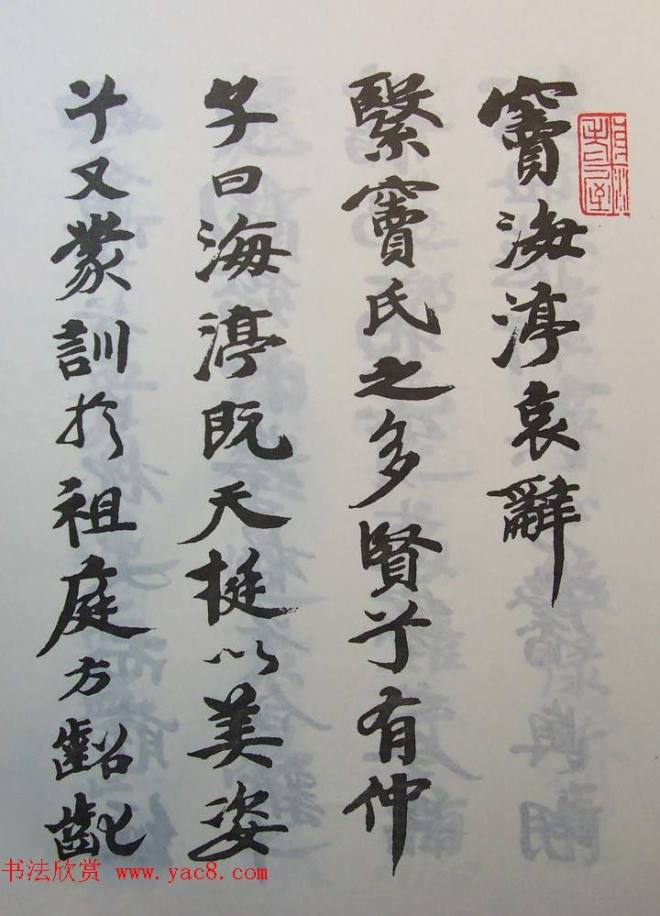 竇海渟哀辭
繄竇氏之多賢兮有仲
子曰海渟既天挺以美姿
兮又蒙訓於祖庭方齠齔
书法欣赏 www.yac8.com